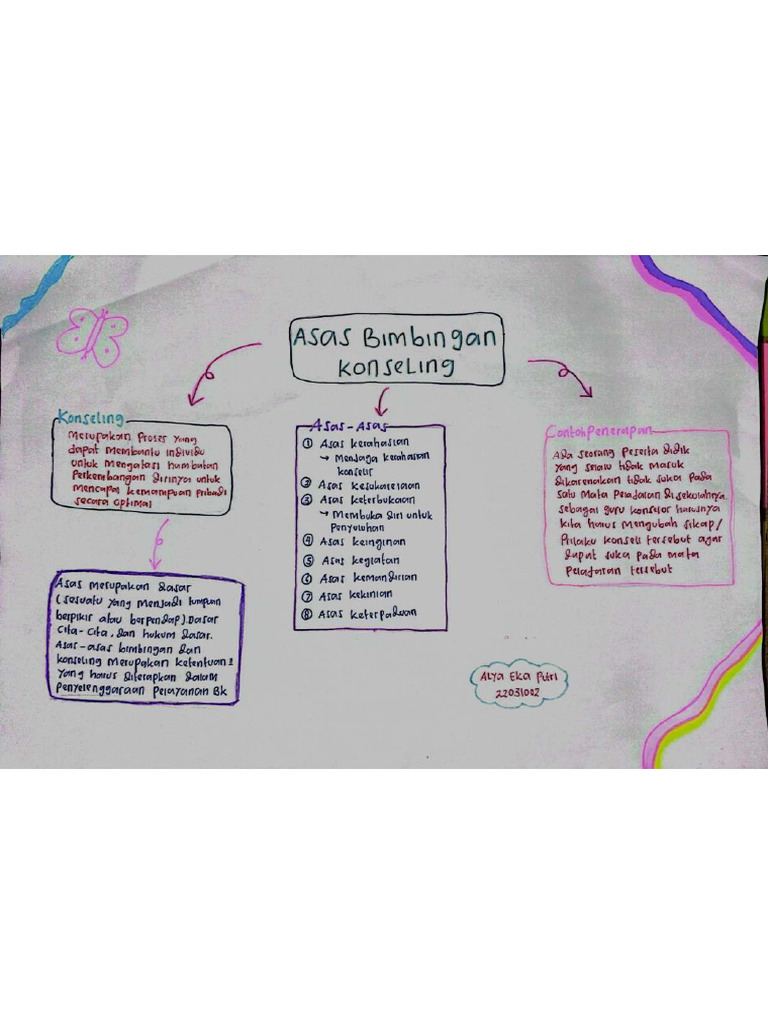 Asas Bimbingan
Konseling
Konseling
Merupakan Proses yang
dapat membantu individu
untuk mengatasi hambatan
Perkembangan dirinya untuk
mencapai kemampuan pribadi
secara optimal
Asas merupakan dasar
(sesuatu yang menjadi tumpuan
berpikir atau berpendap) Dasar
Cita-Cita, dan hukum dasar.
Asas-asas bimbingan dan
konseling merupakan ketentuan2
yang harus diterapkan dalam
Penyelenggaraan Pelayanan BK
Asas-Asas
① Asas kerahasian
→ Menjaga kerahasian
konselir
② Asas kesukarelaan
③ Asas keterbukaan
→ Membuka diri untuk
Penyuluhan
④ Asas keinginan
⑤ Asas kegiatan
⑥ Asas kemandirian
⑦ Asas kekinian
⑧ Asas keterpaduan
Contoh Penerapan
Ada seorang Peserta didik
yang selalu tidak masuk
dikarenakan tidak sukai pada
satu Mata Pelajaran disekolahnya
sebagai guru konselor harusnya
kita harus mengubah sikap/
Prilaku konseli tersebut agar
dapat suka pada mata
Pelajaran tersebut
Alya Eka Putri
22031002